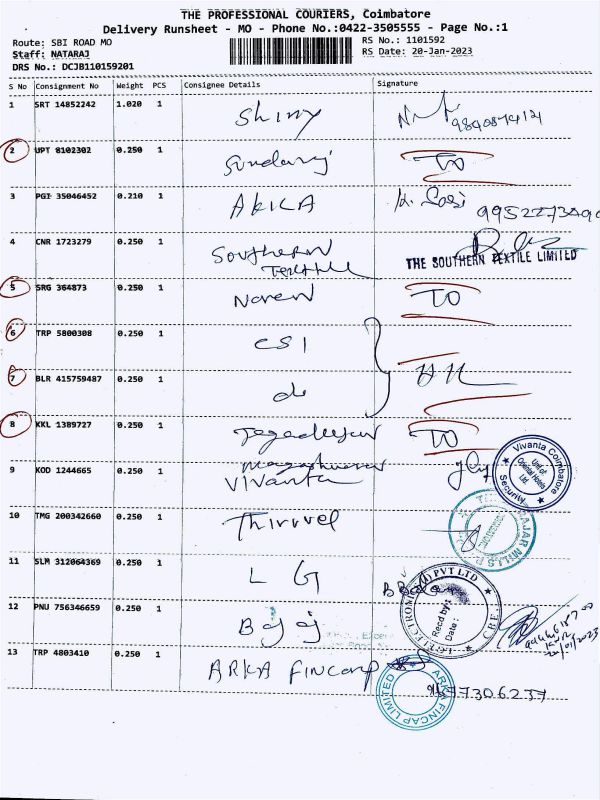 THE PROFESSIONAL COURIERS, Coimbatore
Delivery Runsheet - MO - Phone No.:0422-3505555 - Page No.:1
Route: SBI ROAD MO
RS No.: 1101592
Staff: NATARAJ
RS Date: 20-Jan-2023
DRS No.: DCJB110159201
S No Consignment No Weight PCS Consignee Details Signature
1 SRT 14852242 1.020 1 Shiny
2 UPT 8102302 0.250 1 Sundaraj TO
3 PGI 35046452 0.210 1 AKILA K. Sasi
4 CNR 1723279 0.250 1 Southern Textile
THE SOUTHERN TEXTILE LIMITED
5 SRG 364873 0.250 1 Naren TO
6 TRP 5800308 0.250 1 CSI
7 BLR 415759487 0.250 1 do
8 KKL 1389727 0.250 1 TO
9 KOD 1244665 0.250 1 Vivanta
Vivanta Coimbatore
Unit of Oriental Hotels Ltd.
Security
10 TMG 200342660 0.250 1
11 SLM 312064369 0.250 1 LG
(I) PVT LTD
CBE
Recd by:
Date:
12 PNU 756346659 0.250 1 Bajaj
13 TRP 4803410 0.250 1 ARKA FINCORP
ARKA FINCAP LIMITED